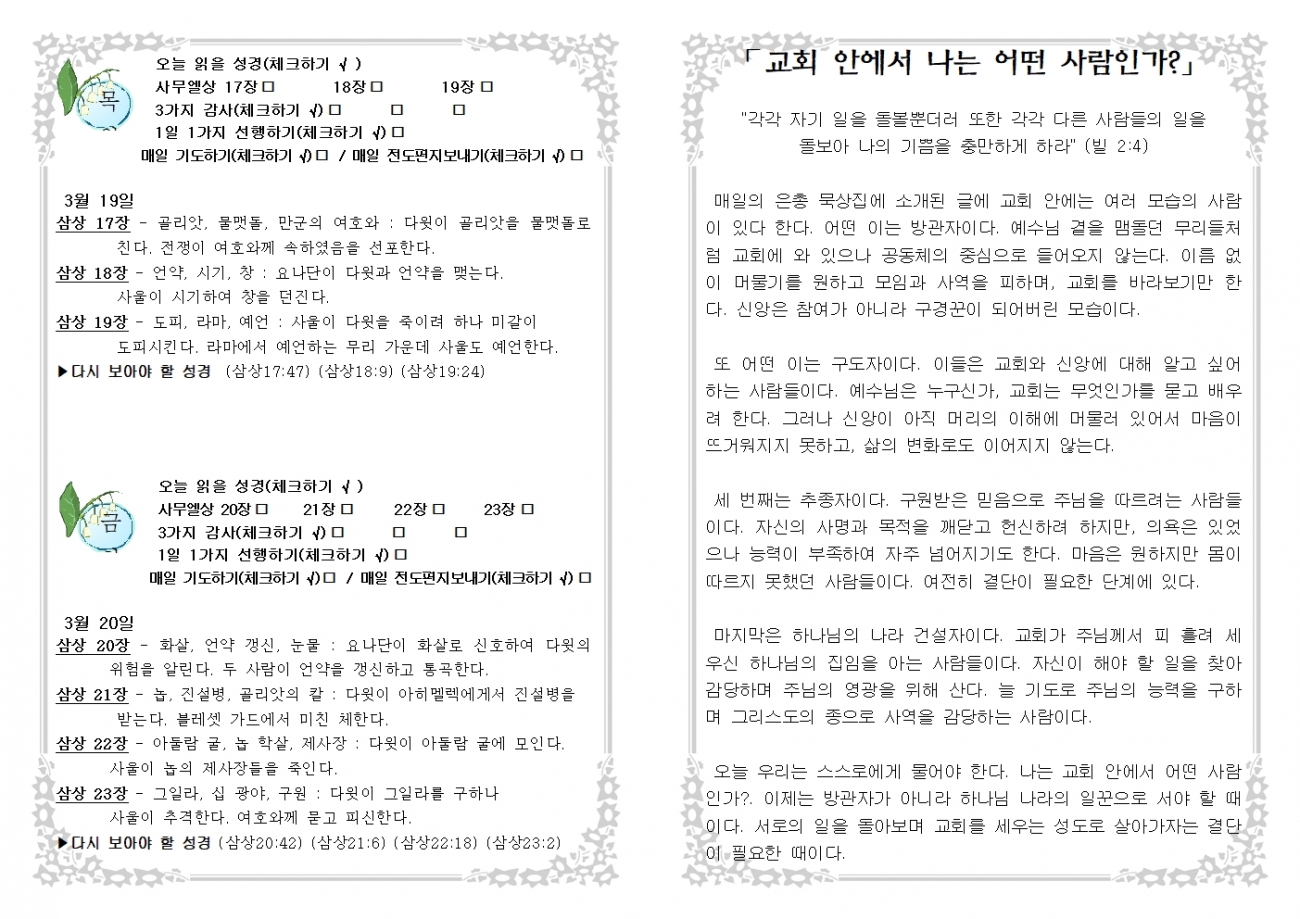 목
오늘 읽을 성경(체크하기 √ )
사무엘상 17장 □ 18장 □ 19장 □
3가지 감사(체크하기 √) □ □ □
1일 1가지 선행하기(체크하기 √) □
매일 기도하기(체크하기 √) □ / 매일 전도편지보내기(체크하기 √) □
3월 19일
삼상 17장 - 골리앗, 물맷돌, 만군의 여호와 : 다윗이 골리앗을 물맷돌로
친다. 전쟁이 여호와께 속하였음을 선포한다.
삼상 18장 - 언약, 시기, 창 : 요나단이 다윗과 언약을 맺는다.
사울이 시기하여 창을 던진다.
삼상 19장 - 도피, 라마, 예언 : 사울이 다윗을 죽이려 하나 미갈이
도피시킨다. 라마에서 예언하는 무리 가운데 사울도 예언한다.
▶다시 보아야 할 성경 (삼상17:47) (삼상18:9) (삼상19:24)
금
오늘 읽을 성경(체크하기 √ )
사무엘상 20장 □ 21장 □ 22장 □ 23장 □
3가지 감사(체크하기 √) □ □ □
1일 1가지 선행하기(체크하기 √) □
매일 기도하기(체크하기 √) □ / 매일 전도편지보내기(체크하기 √) □
3월 20일
삼상 20장 - 화살, 언약 갱신, 눈물 : 요나단이 화살로 신호하여 다윗의
위험을 알린다. 두 사람이 언약을 갱신하고 통곡한다.
삼상 21장 - 놉, 진설병, 골리앗의 칼 : 다윗이 아히멜렉에게서 진설병을
받는다. 블레셋 가드에서 미친 체한다.
삼상 22장 - 아둘람 굴, 놉 학살, 제사장 : 다윗이 아둘람 굴에 모인다.
사울이 놉의 제사장들을 죽인다.
삼상 23장 - 그일라, 십 광야, 구원 : 다윗이 그일라를 구하나
사울이 추격한다. 여호와께 묻고 피신한다.
▶다시 보아야 할 성경 (삼상20:42) (삼상21:6) (삼상22:18) (삼상23:2)
「교회 안에서 나는 어떤 사람인가?」
"각각 자기 일을 돌볼뿐더러 또한 각각 다른 사람들의 일을
돌보아 나의 기쁨을 충만하게 하라" (빌 2:4)
매일의 은총 묵상집에 소개된 글에 교회 안에는 여러 모습의 사람
이 있다 한다. 어떤 이는 방관자이다. 예수님 곁을 맴돌던 무리들처
럼 교회에 와 있으나 공동체의 중심으로 들어오지 않는다. 이름 없
이 머물기를 원하고 모임과 사역을 피하며, 교회를 바라보기만 한
다. 신앙은 참여가 아니라 구경꾼이 되어버린 모습이다.
또 어떤 이는 구도자이다. 이들은 교회와 신앙에 대해 알고 싶어
하는 사람들이다. 예수님은 누구신가, 교회는 무엇인가를 묻고 배우
려 한다. 그러나 신앙이 아직 머리의 이해에 머물러 있어서 마음이
뜨거워지지 못하고, 삶의 변화로도 이어지지 않는다.
세 번째는 추종자이다. 구원받은 믿음으로 주님을 따르려는 사람들
이다. 자신의 사명과 목적을 깨닫고 헌신하려 하지만, 의욕은 있었
으나 능력이 부족하여 자주 넘어지기도 한다. 마음은 원하지만 몸이
따르지 못했던 사람들이다. 여전히 결단이 필요한 단계에 있다.
마지막은 하나님의 나라 건설자이다. 교회가 주님께서 피 흘려 세
우신 하나님의 집임을 아는 사람들이다. 자신이 해야 할 일을 찾아
감당하며 주님의 영광을 위해 산다. 늘 기도로 주님의 능력을 구하
며 그리스도의 종으로 사역을 감당하는 사람이다.
오늘 우리는 스스로에게 물어야 한다. 나는 교회 안에서 어떤 사람
인가?. 이제는 방관자가 아니라 하나님 나라의 일꾼으로 서야 할 때
이다. 서로의 일을 돌아보며 교회를 세우는 성도로 살아가자는 결단
이 필요한 때이다.